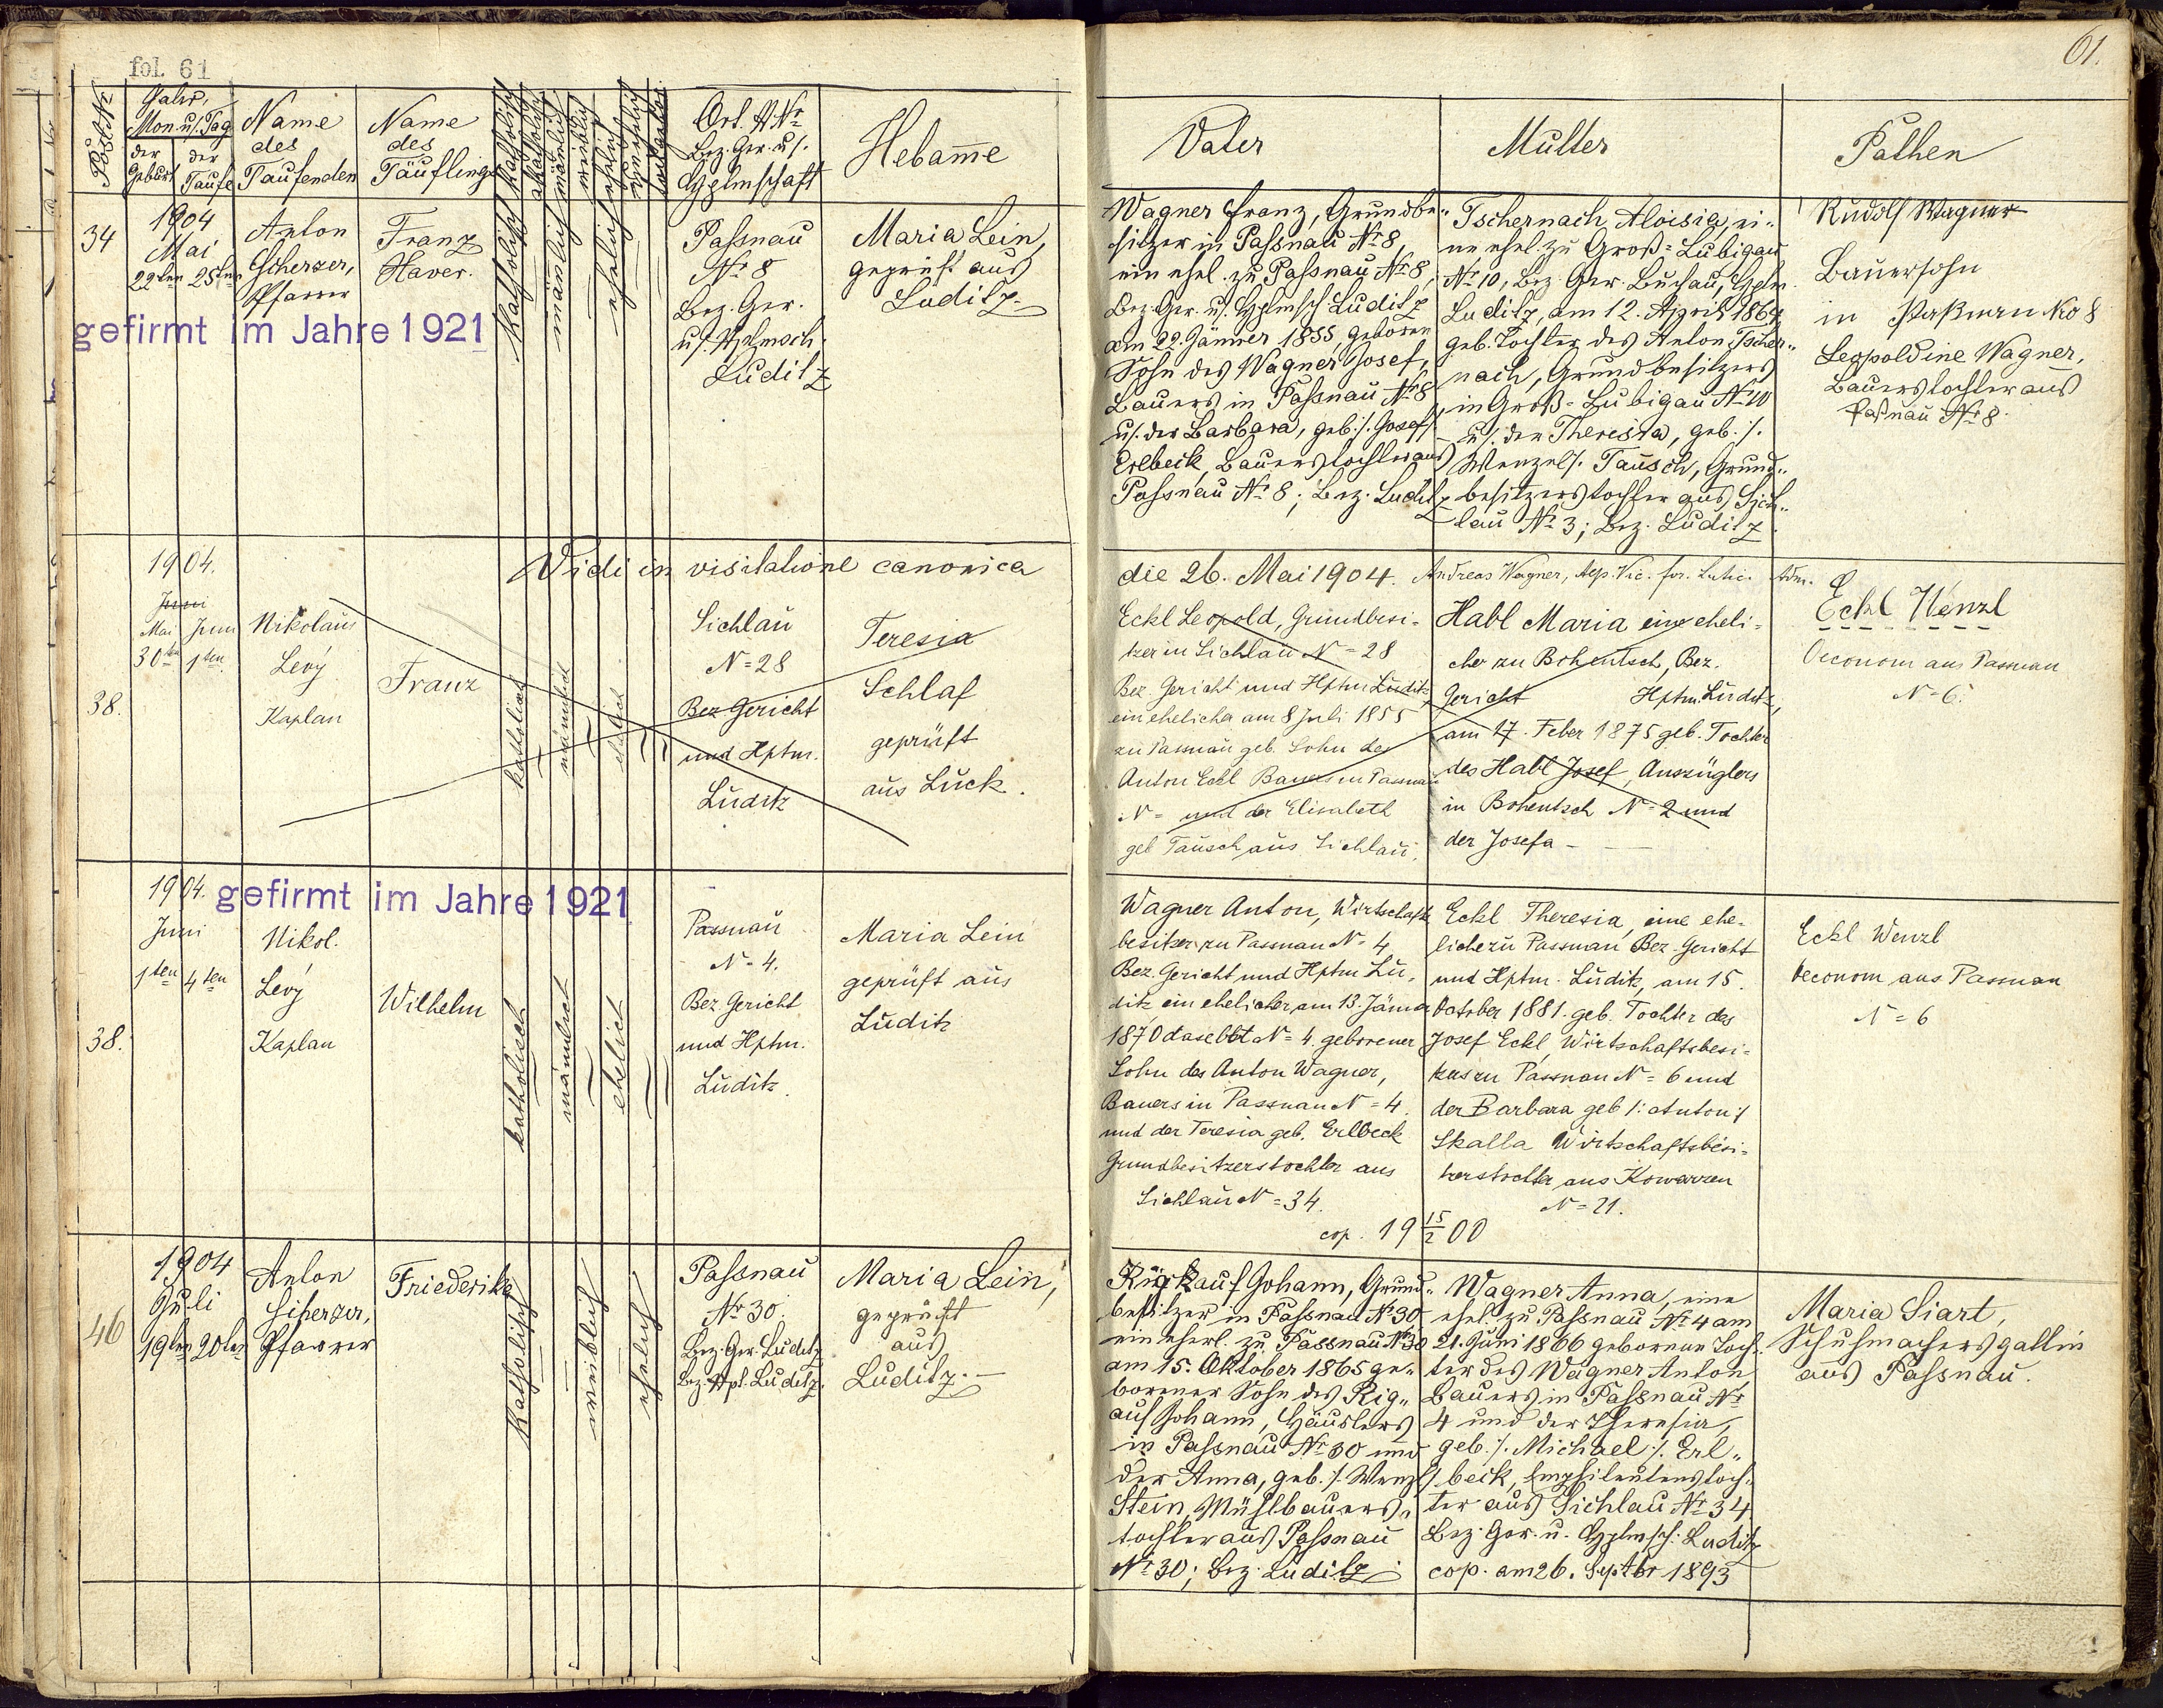 fol. 61
61.
Post-Nr
Jahr,
Mon. u/. Tag
der Geburt
der Taufe
Name
des
Taufenden
Name
des
Täuflings
katholisch
akatholisch
männlich
weiblich
ehelich
unehelich
Ort. H. Nr
Bez. Ger. u/.
Hptmschaft
Hebam̄e
Vater
Mutter
Pathen
34
1904
Mai
22ten 25ten
Anton
Scherzer,
Pfarrer
Franz
Xaver.
katholisch
männlich
ehelich
Passnau
Nr 8
Bez. Ger.
u/. Hptmsch.
Luditz
Maria Lein,
geprüft aus
Luditz.
gefirmt im Jahre 1921
Wagner Franz, Grundbe-
sitzer in Passnau Nr 8,
ein ehel. zu Passnau Nr 8,
Bez. Ger. u/. Hptmsch Luditz
am 22. Jänner 1855, geboren
Sohn des Wagner Josef,
Bauers in Passnau Nr 8
u/. der Barbara, geb. /. Josef /.
Erlbeck, Bauerstochter aus
Passnau Nr 8; Bez. Luditz
Tschernach Aloisia, ei-
ne ehel. zu Groß-Lubigau
Nr 10, Bez. Ger. Buchau, Hptm.
Luditz, am 12. April 1864
geb. Tochter des Anton Tscher-
nach, Grundbesitzers
in Groß-Lubigau Nr 10
u/. der Theresia, geb. /.
Wenzel /. Tausch, Grund-
besitzerstochter aus Sich-
lau Nr 3; Bez. Luditz.
Rudolf Wagner
Bauersohn
in Paßnau No 8
Leopoldine Wagner,
Bauerstochter aus
Paßnau Nr 8.
Vidi in visitatione canonica
die 26. Mai 1904. Andreas Wagner,
38.
1904.
Juni
Mai Juni
30ten 1ten
Nikolaus
Levý
Kaplan
Franz
katholisch
männlich
ehelich
Sichlau
N=28
Bez Gericht
und Hptm.
Luditz
Teresia
Schlaf
geprüft
aus Luck.
Eckl Leopold, Grundbesi-
tzer in Sichlau N=28
Bez. Gericht und Hptm Luditz,
ein ehelicher am 8 Juli 1855
zu Passnau geb. Sohn des
Anton Eckl Bauers in Passnau
N= und der Elisabeth
geb Tausch aus Sichlau,
Habl Maria eine eheli-
che zu Bohentsch, Bez.
Gericht Hptm. Luditz,
am 17. Feber 1875 geb. Tochter
des Habl Josef, Auszüglers
in Bohentsch N=2 und
der Josefa -
Eckl Wenzl
Oeconom aus Passnau
N=6.
38.
1904.
Juni
1ten 4ten
gefirmt im Jahre 1921
Nikol.
Levý
Kaplan
Wilhelm
katholisch
männlich
ehelich
Passnau
N=4.
Bez Gericht
und Hptm.
Luditz.
Maria Lein
geprüft aus
Luditz
Wagner Anton, Wirtschafts
besitzer zu Passnau N=4,
Bez. Gericht und Hptm Lu-
ditz, ein ehelicher, am 13. Jänner
1870 daselbst N=4. geborener
Sohn des Anton Wagner,
Bauers in Passnau N=4.
und der Teresia geb. Erlbeck
Grundbesitzerstochter aus
Sichlau N=34.
Eckl Theresia, eine ehe-
liche zu Passnau Bez. Gericht
und Hptm. Luditz, am 15.
October 1881. geb. Tochter des
Josef Eckl, Wirtschaftsbesi-
tzers zu Passnau N=6 und
der Barbara geb /: Anton :/
Skalla Wirtschaftsbesi-
tzerstochter aus Kowarzen
N=21.
cop. 19 15/2 00
Eckl Wenzl
Oeconom aus Passnau
N=6
46
1904
Juli
19ten 20ten
Anton
Scherzer,
Pfarrer
Friederike
katholisch
weiblich
ehelich
Passnau
Nr 30.
Bez. Ger. Luditz
Bez. Hpt. Luditz.
Maria Lein,
geprüft
aus
Luditz.
Rigkauf Johann, Grund-
besitzer in Passnau Nr 30
ein ehel. zu Passnau Nr 30
am 15. Oktober 1865 ge-
borener Sohn des Rig-
auf Johann, Häuslers
in Passnau Nr 30 und
der Anna, geb. /. Wenzl /.
Stein, Mühlbauers-
tochter aus Passnau
Nr 30; Bez. Luditz
Wagner Anna, eine
ehel. zu Passnau Nr 4 am
21. Juni 1866 geborene Toch-
ter des Wagner Anton
Bauers in Passnau Nr
4 und der Theresia,
geb. /. Michael /. Erl-
beck, Emphiteutenstoch-
ter aus Sichlau Nr 34
Bez. Ger. u. Hptmsch. Luditz
cop. am 26. Septbr 1893
Maria Siart,
Schuhmachersgattin
aus Passnau.